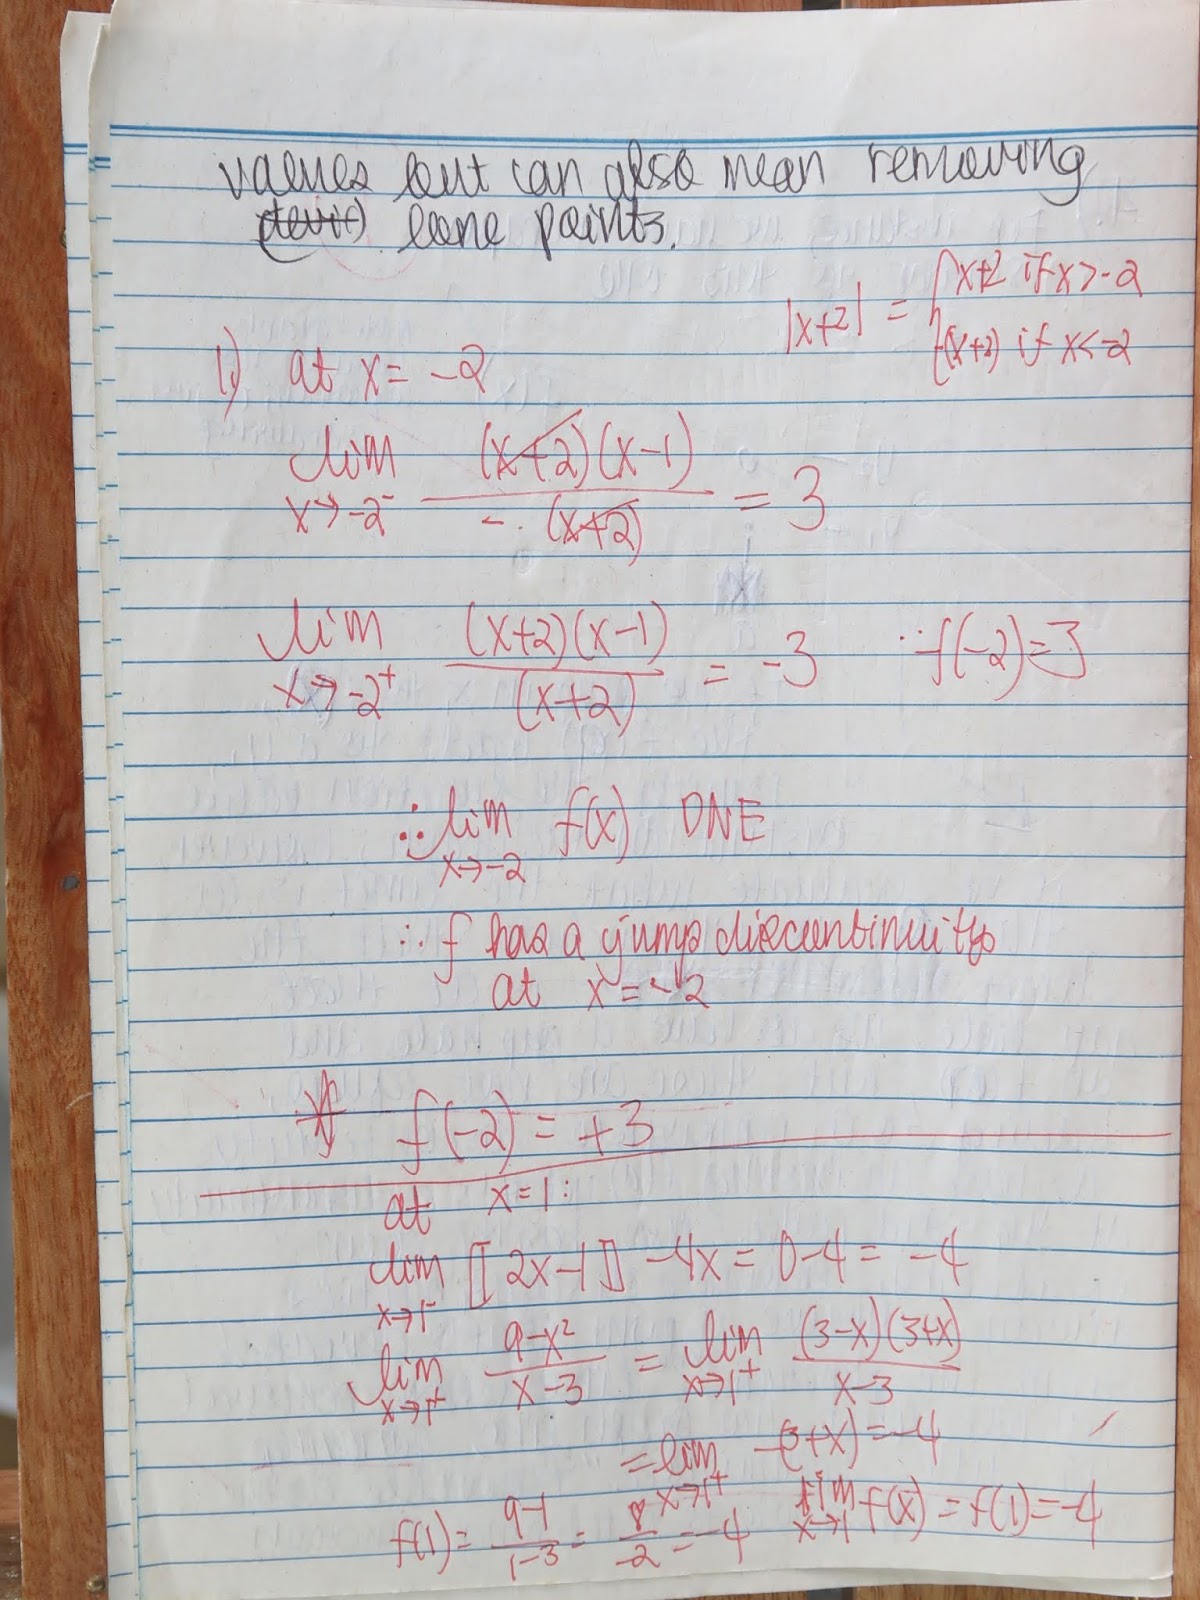 values but can also mean removing
lone points.
|x+2| = { x+2 if x>-2
-(x+2) if x<-2
1.) at x = -2
lim x→-2⁻ (x+2)(x-1) / -(x+2) = 3
lim x→-2⁺ (x+2)(x-1) / (x+2) = -3 ∵ f(-2)=3
∴ lim x→-2 f(x) DNE
∴ f has a jump discontinuity
at x = -2
* f(-2) = +3
at x=1:
lim x→1⁻ ⟦2x-1⟧ -4x = 0-4 = -4
lim x→1⁺ 9-x² / x-3 = lim x→1⁺ (3-x)(3+x) / x-3
= lim x→1⁺ -(3+x) = -4
f(1) = 9-1 / 1-3 = 8 / -2 = -4 lim x→1 f(x) = f(1) = -4